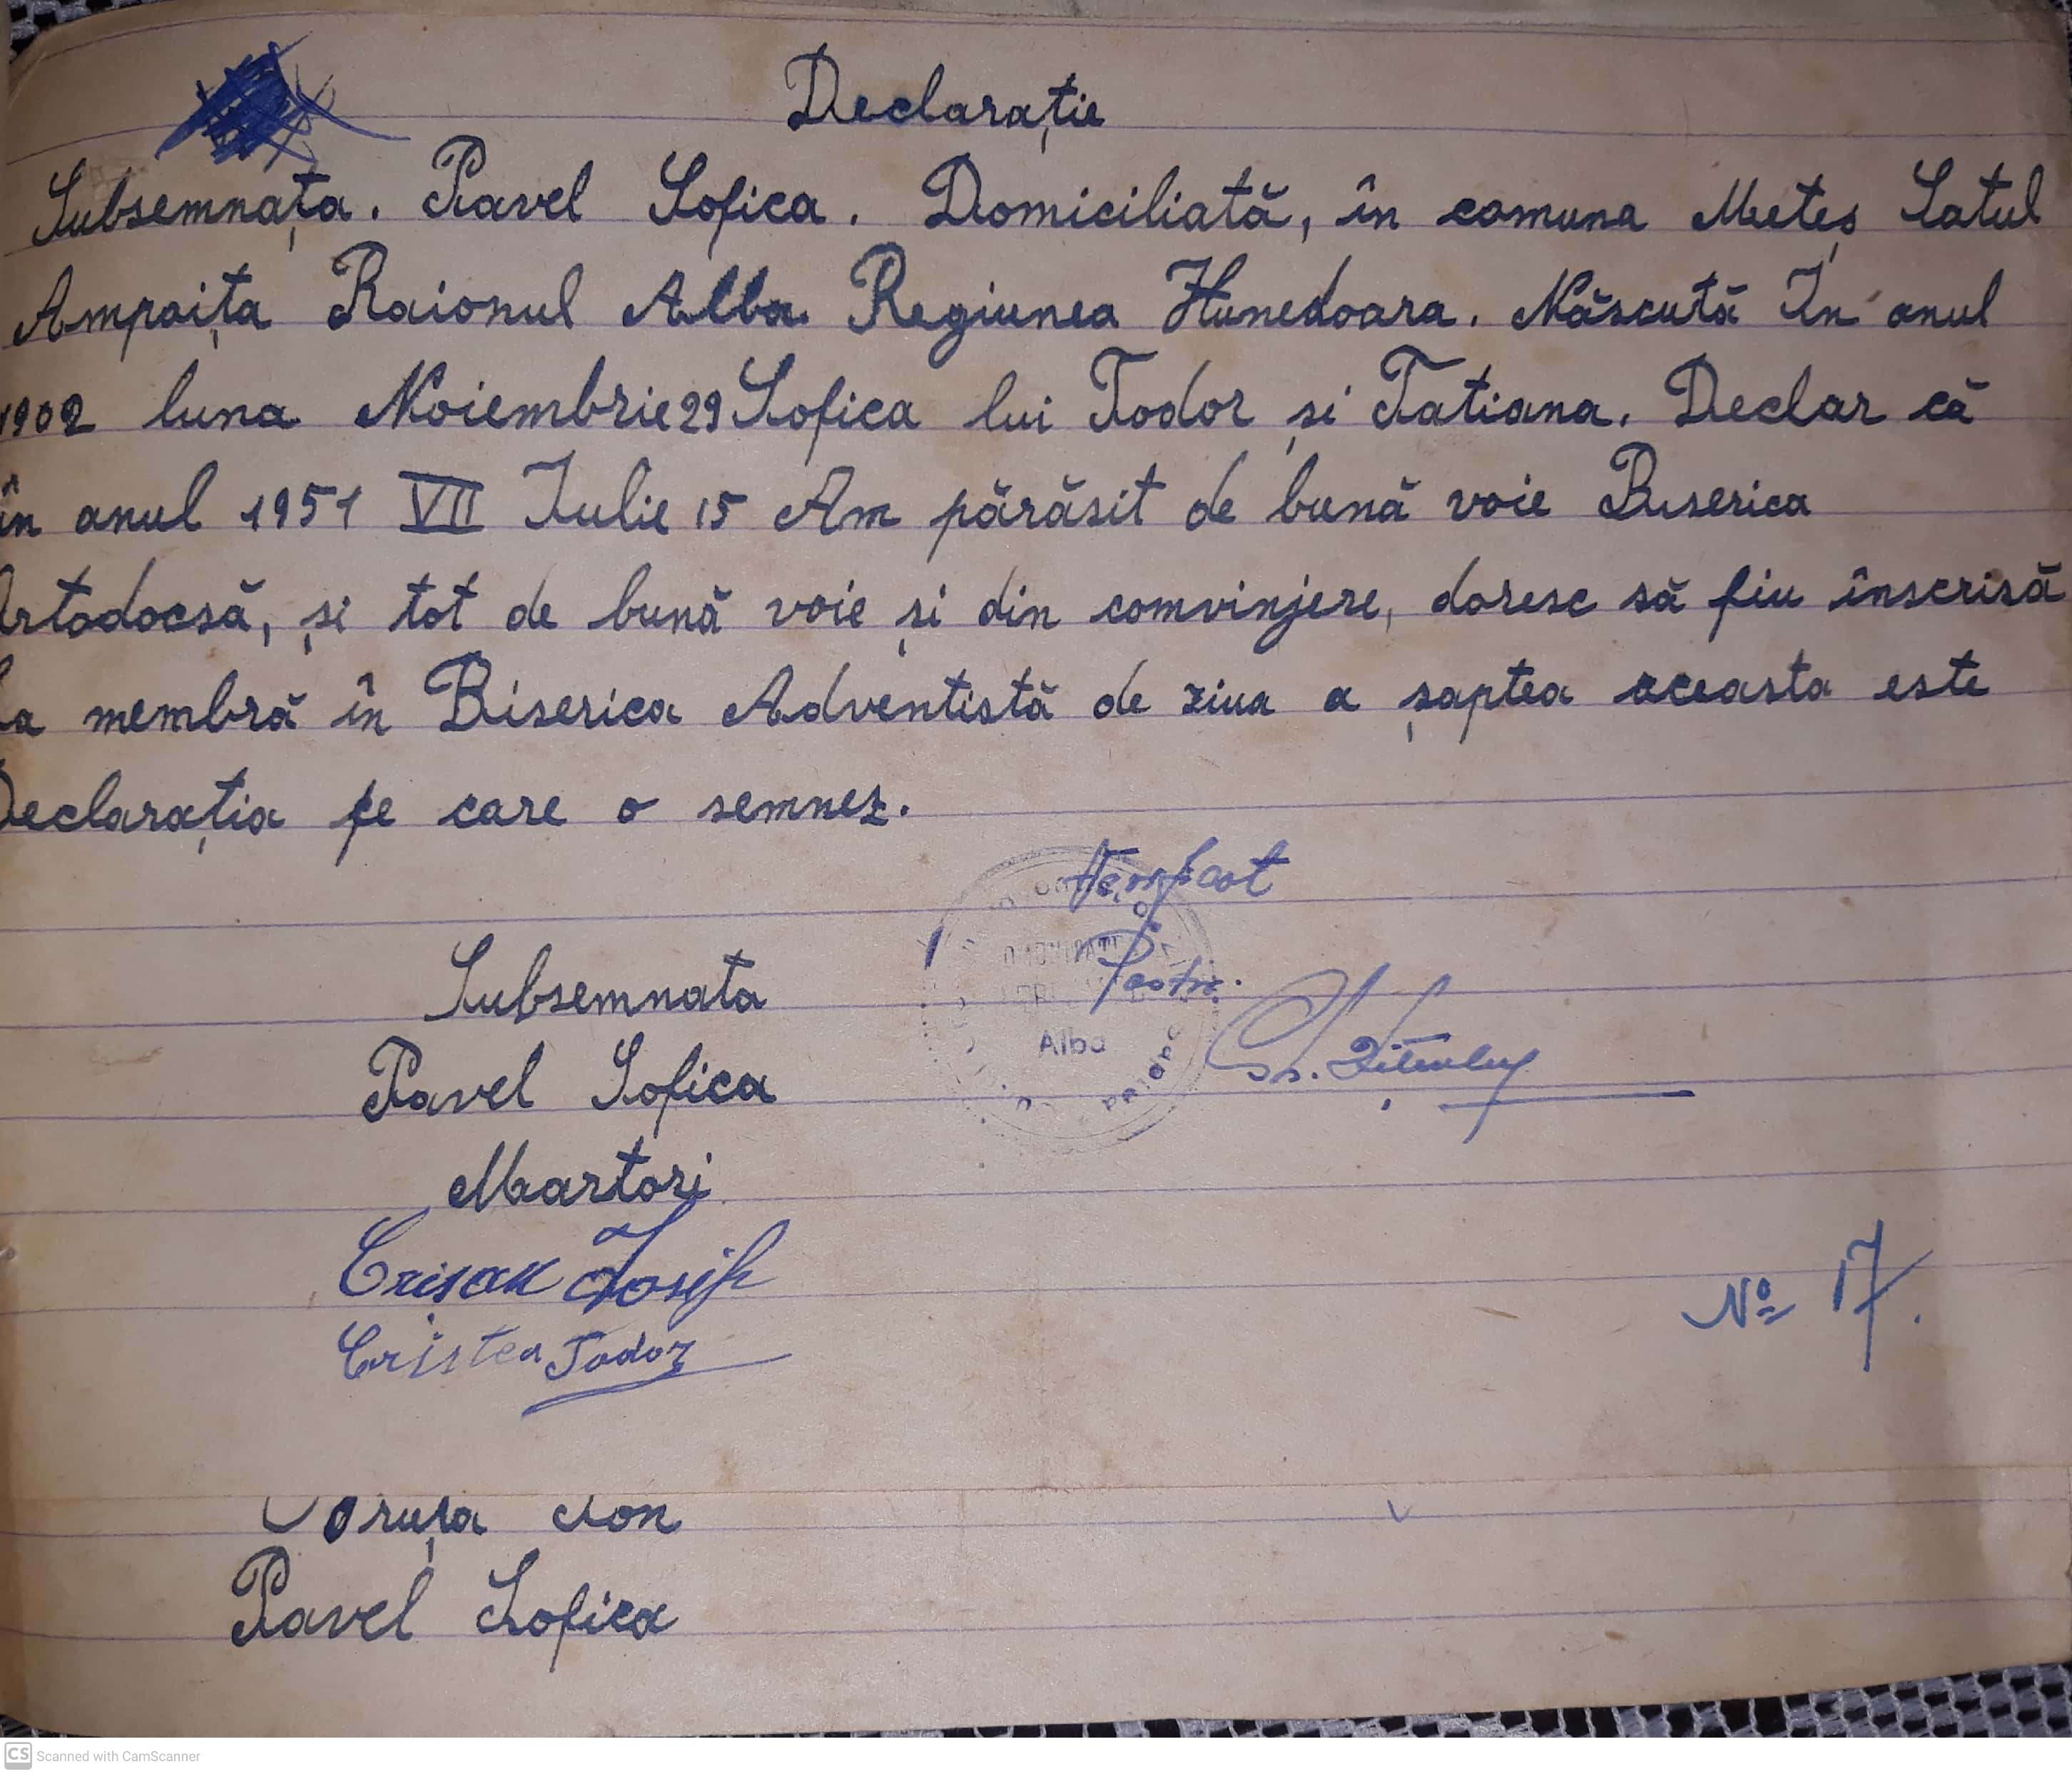 Declarație
Subsemnața. Pavel Sofica. Domiciliată, în comuna Meteș Satul
Ampoița Raionul Alba Regiunea Hunedoara. Născută În anul
1902 luna Noiembrie 29 Sofica lui Todor și Tatiana. Declar că
în anul 1951 VII Iulie 15 Am părăsit de bună voie Biserica
Ortodocsă, și tot de bună voie și din comvinjere, doresc să fiu înscrisă
Ca membră în Biserica Adventistă de ziua a șaptea aceasta este
Declarația pe care o semnez.
Verificat
Subsemnata
Pastor.
Alba
Pavel Sofica
Martori
Crișan Iosif
Nº 17.
Cristea Todor
Ion
Pavel Sofica
CS Scanned with CamScanner